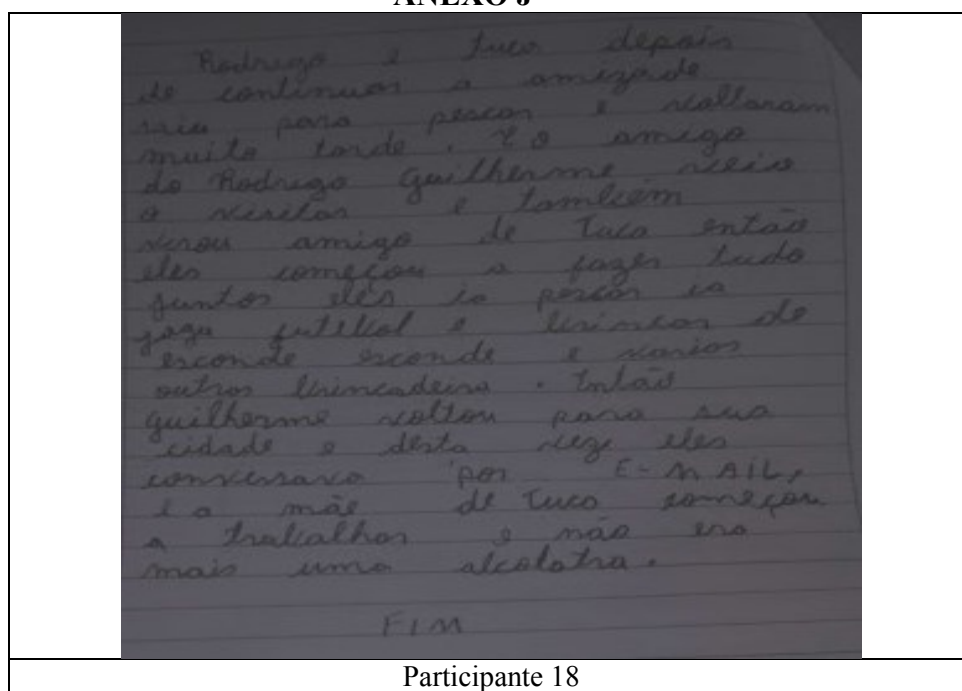 ANEXO J
Rodrigo e Tuco depois
de continuar a amizade
para pescar e voltaram
muito tarde. E o amigo
do Rodrigo Guilherme veio
o visitar e também
virou amigo de Tuco então
eles começou a fazer tudo
juntos eles ia pescar ia
joga e brincar de
esconde esconde e varios
outros brincadeira. Então
Guilherme voltou para sua
cidade e desta vez eles
conversava por E-MAIL,
e a mãe de Tuco começou
a trabalhar e não era
mais uma alcolotra.
FIM
Participante 18